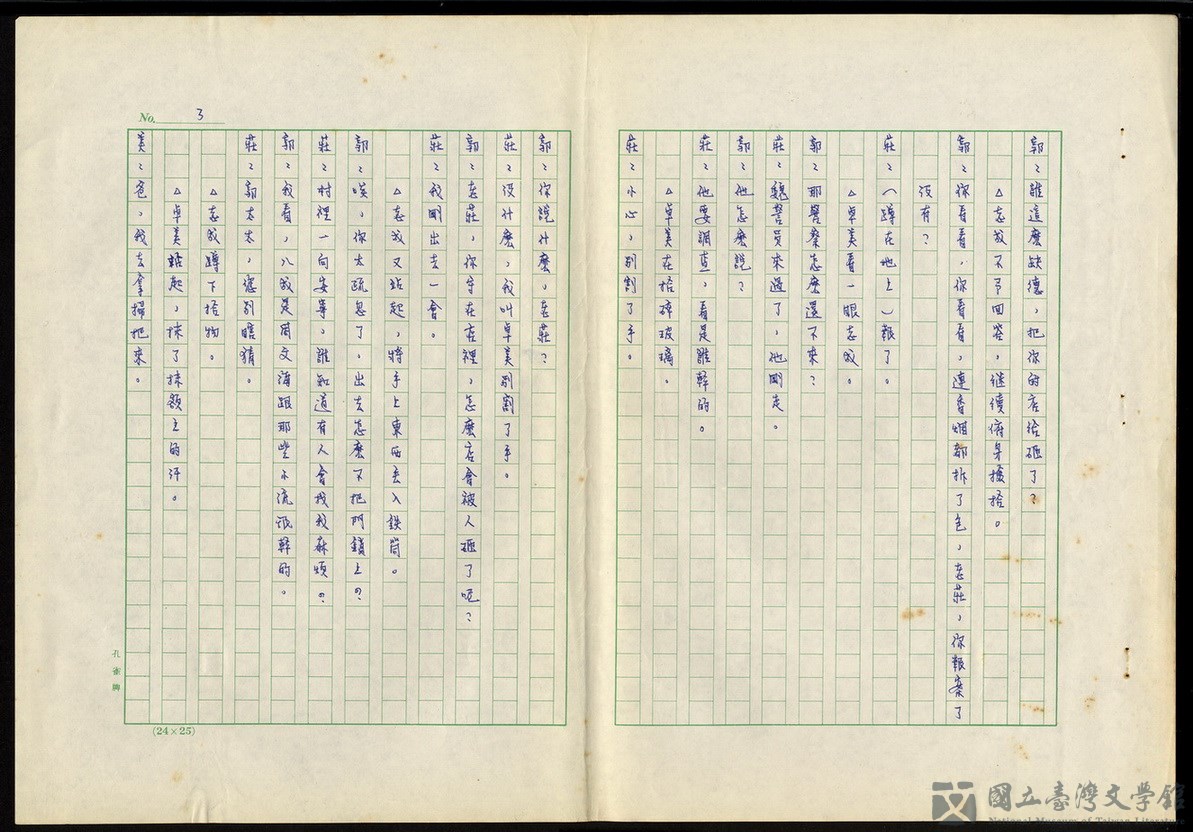 No. 3
郭：誰這麼缺德，把你的店給砸了？
△志成不予回答，继續俯身撿拾。
郭：你看看，你看看，連香烟都拆了包，老莊，你報案了
没有？
莊：（蹲在地上）報了。
△卓美看一眼志成。
郭：那警察怎麼還不來？
莊：魏警員來過了，他剛走。
郭：他怎麼說？
莊：他要調查，看是誰幹的。
△卓美在拾碎玻璃。
莊：小心，別割了手。
郭：你說什麼，老莊？
莊：没什麼，我叫卓美別割了手。
郭：老莊，你守在店裡，怎麼店會被人砸了呢？
莊：我剛出去一會。
△志成又站起，將手上東西丢入鉄筒。
郭：唉，你太疏忽了，出去怎麼不把門鎖上？
莊：村裡一向安寧，誰知道有人會找我麻煩？
郭：我看，八成是周文海跟那些小流氓幹的。
莊：郭太太，您別瞎猜。
△志成蹲下拾物。
△卓美站起，抹了抹額上的汗。
美：爸，我去拿掃把來。
孔雀牌
(24×25)
國立臺灣文學館
National Museum of Taiwan Literature